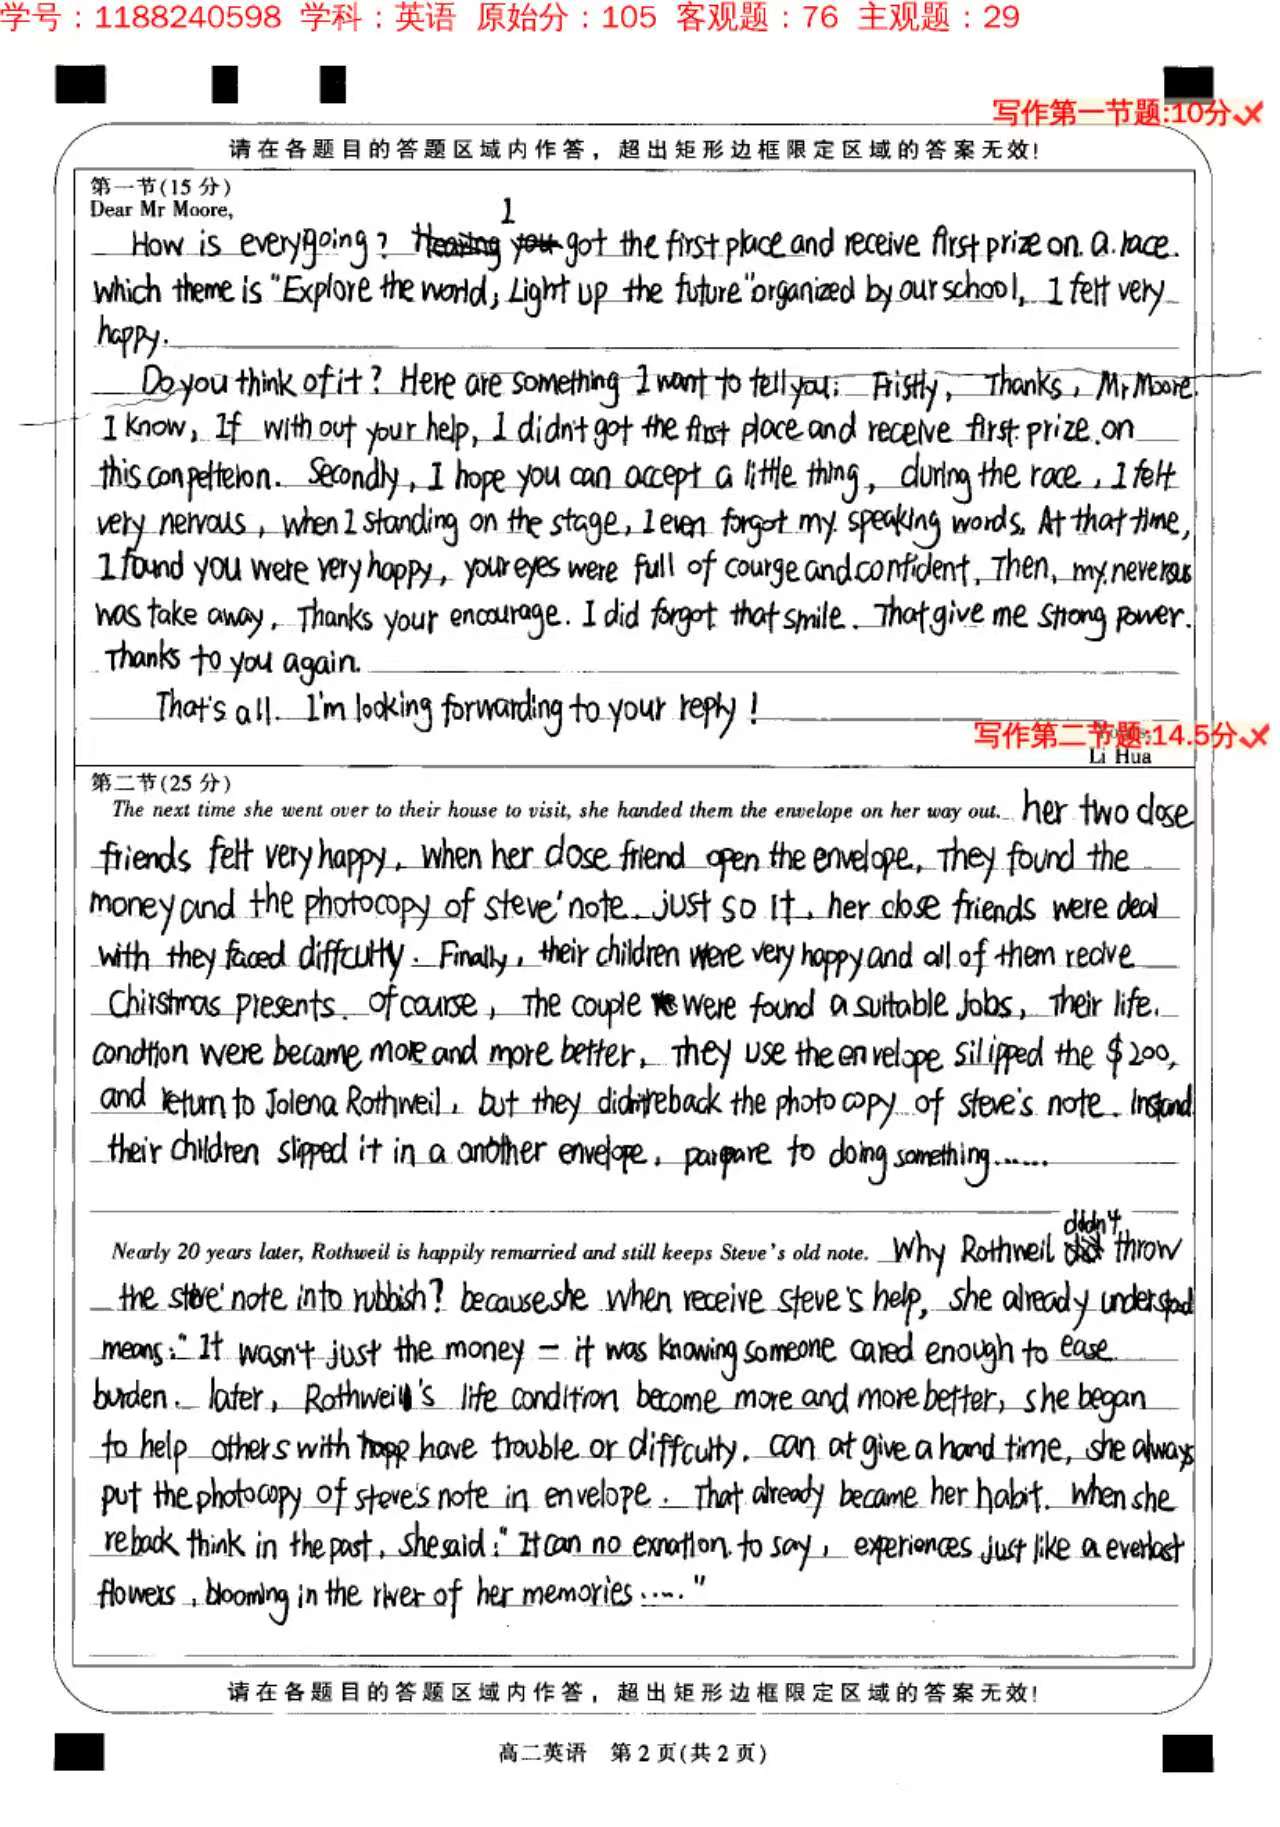 学号：1188240598 学科：英语 原始分：105 客观题：76 主观题：29
写作第一节题:10分
请在各题目的答题区域内作答，超出矩形边框限定区域的答案无效！
第一节(15分)
Dear Mr Moore,
How is everything going? I got the first place and receive first prize on a race.
which theme is "Explore the world, Light up the future" organized by our school, I felt very
happy.
Do you think of it? Here are something I want to tell you: Fristly, Thanks, Mr Moore.
I know, If with out your help, I didn't got the first place and receive first prize on
this conpetteion. Secondly, I hope you can accept a little thing, during the race, I felt
very nervous, when I standing on the stage, I even forgot my speaking words. At that time,
I found you were very happy, your eyes were full of courge and confident. Then, my neverous
was take away, Thanks your encourage. I did forgot that smile. That give me strong power.
Thanks to you again.
That's all. I'm looking forwarding to your reply!
写作第二节题:14.5分
Li Hua
第二节(25分)
The next time she went over to their house to visit, she handed them the envelope on her way out. her two close
friends felt very happy, when her close friend open the envelope, They found the
money and the photocopy of steve' note. just so it, her close friends were deal
with they faced diffcutty. Finally, their children were very happy and all of them recive
Chirstmas presents. Of course, The couple were found a suitable jobs, Their life.
condtion were became more and more better, They use the envelope silipped the $200,
and return to Jolena Rothweil, but they didn't reback the photo copy of steve's note. Instand
their children slipped it in a another envelope, parpare to doing something......
Nearly 20 years later, Rothweil is happily remarried and still keeps Steve's old note. Why Rothweil didn't throw
the steve' note into rubbish? because she when receive steve's help, she already understood
means: "It wasn't just the money — it was knowing someone cared enough to ease
burden. later, Rothweill's life condition become more and more better, she began
to help others with have trouble or diffcuty. can at give a hand time, she always
put the photocopy of steve's note in envelope. That already became her habit. When she
reback think in the past, she said: "It can no exnation to say, experiences just like a everlast
flowers, blooming in the river of her memories....."
请在各题目的答题区域内作答，超出矩形边框限定区域的答案无效！
高二英语 第2页(共2页)